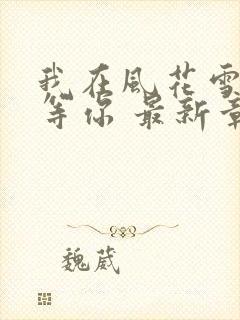 我在風花雪
等你 最新章
魏葳